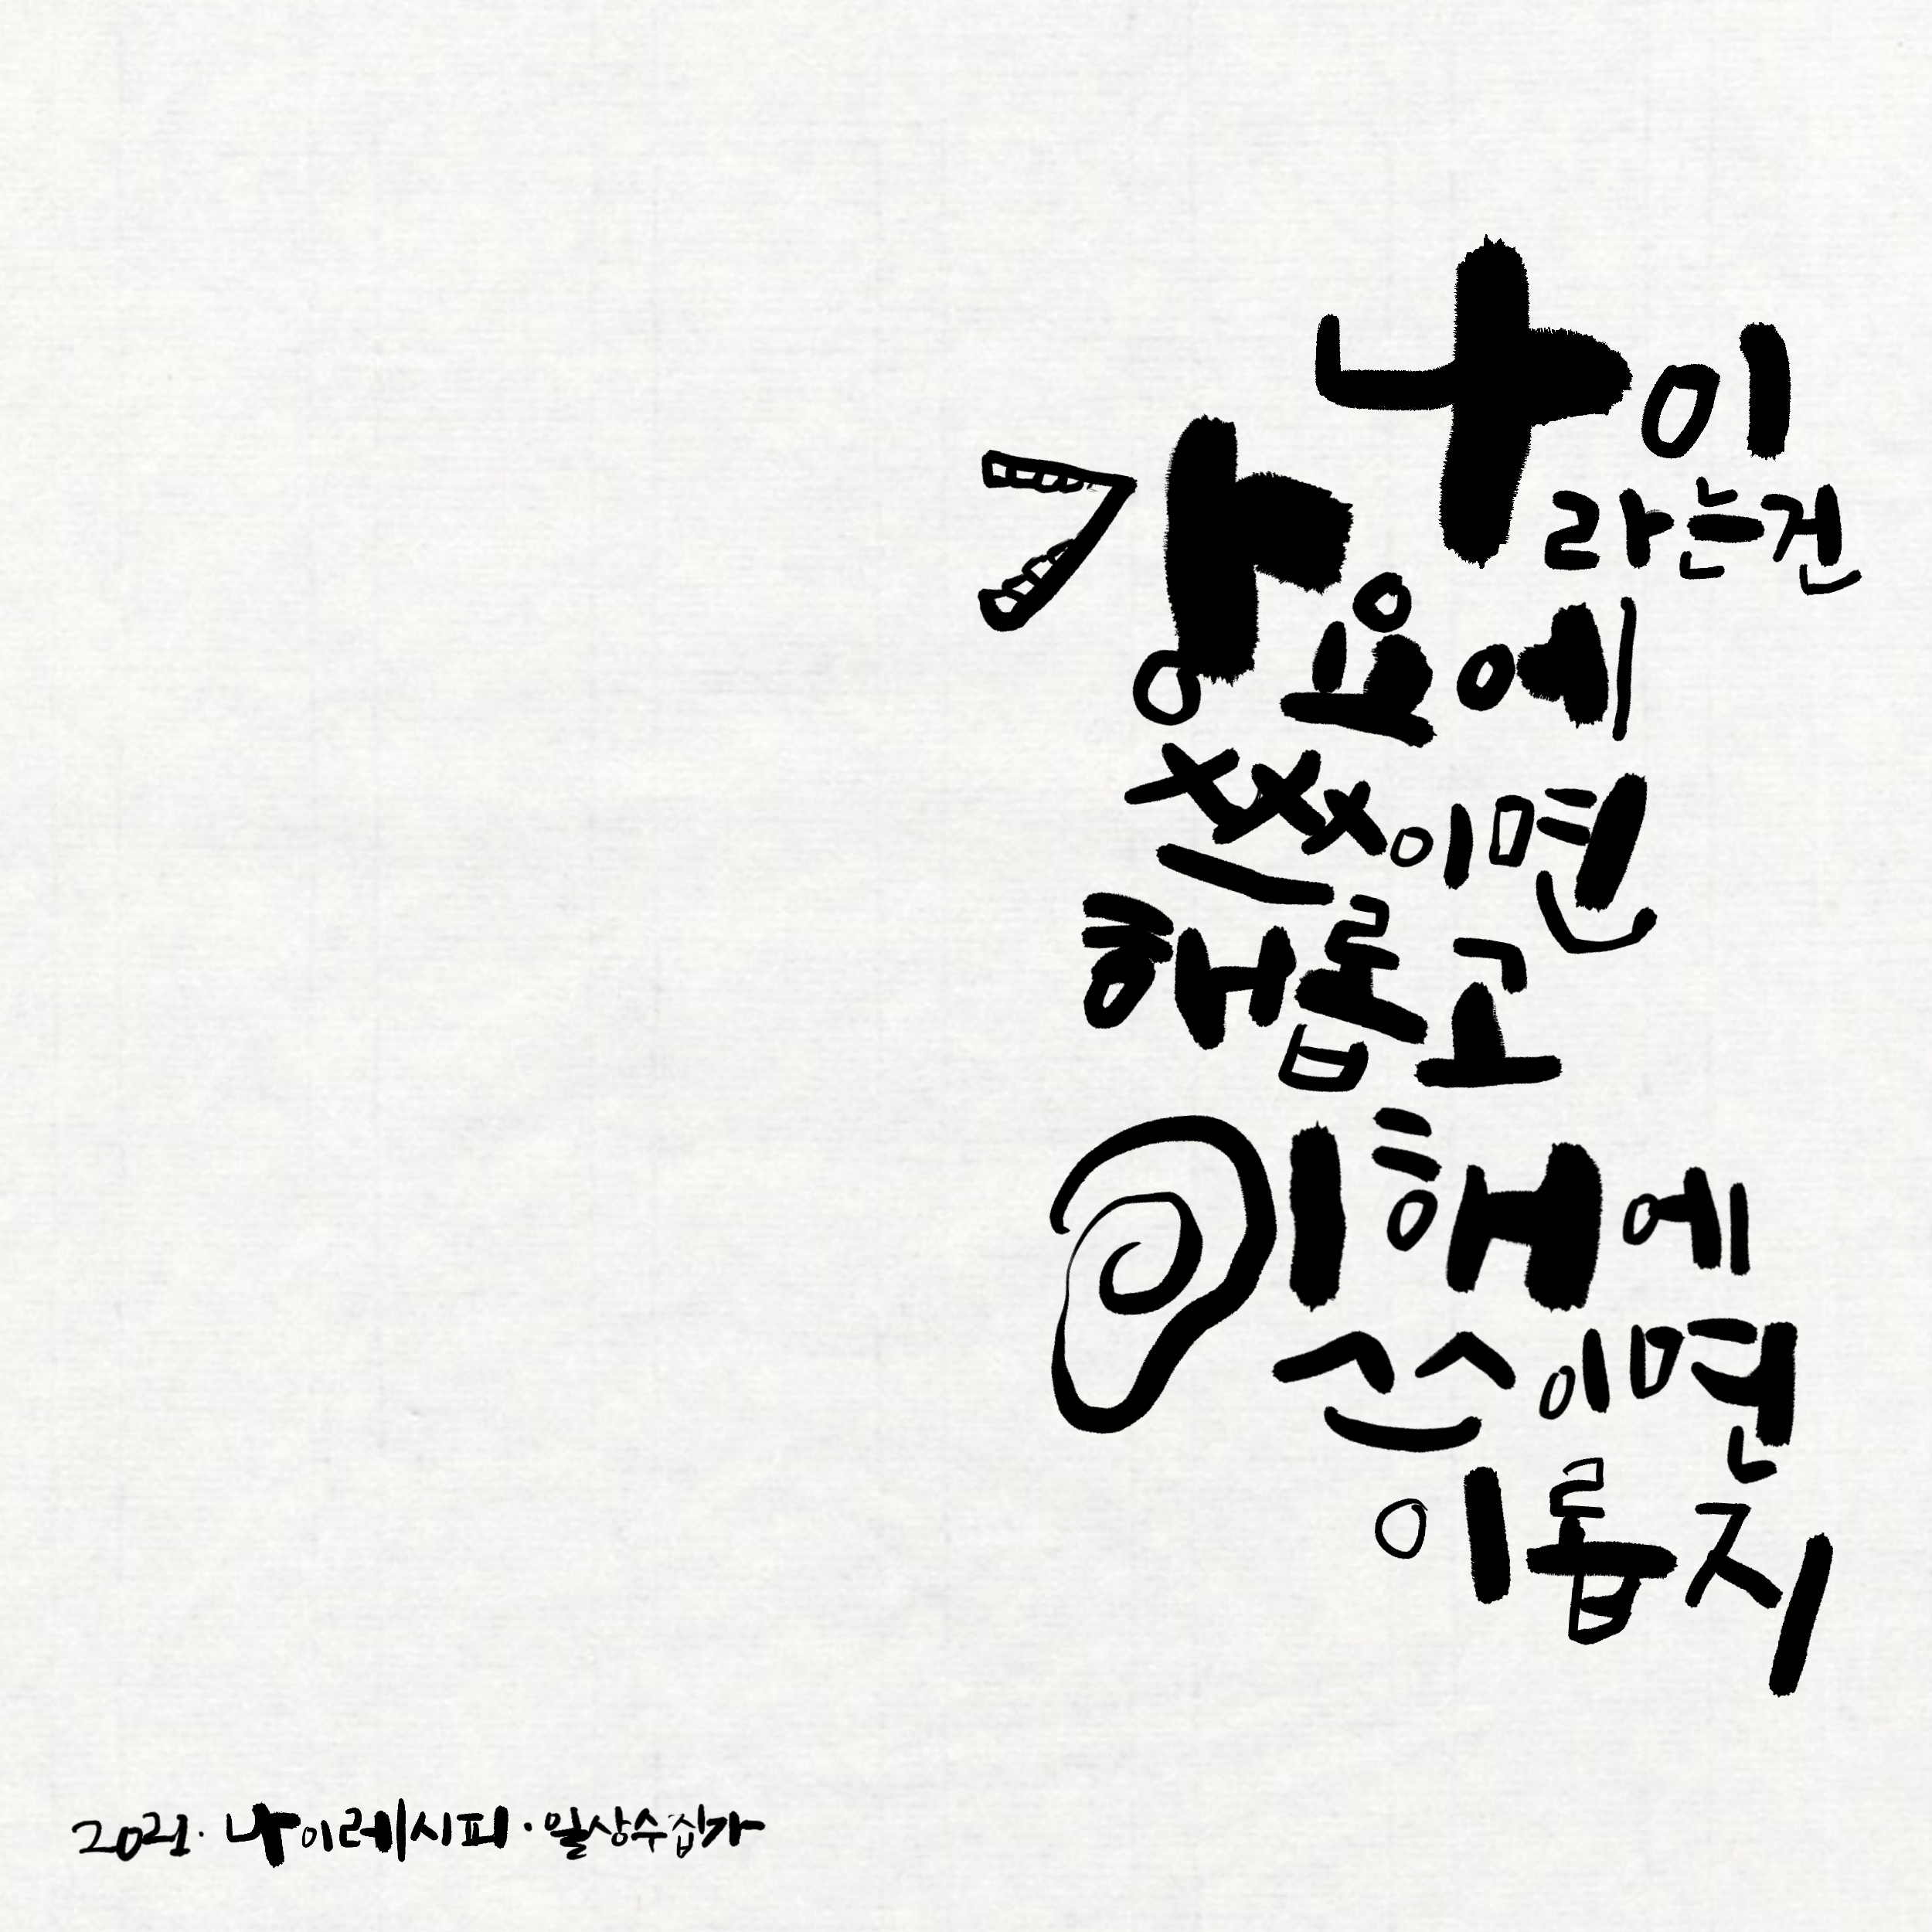 나이
라는건
강요에
쓰이면
해롭고
이해에
쓰이면
이롭지
2021. 나이레시피 · 일상수집가